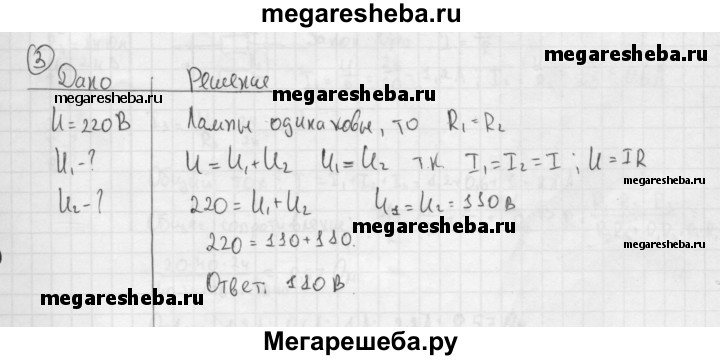 megaresheba.ru
3
megaresheba.ru
Дано Решение
megaresheba.ru megaresheba.ru
U = 220 В Лампы одинаковы, то R₁ = R₂
U₁ - ? U = U₁ + U₂ U₁ = U₂ т.к. I₁ = I₂ = I ; U = IR
megaresheba.ru
U₂ - ? 220 = U₁ + U₂ U₁ = U₂ = 110 В
megaresheba.ru
220 = 110 + 110.
Ответ. 110 В.
megaresheba.ru megaresheba.ru
Мегарешеба.ру